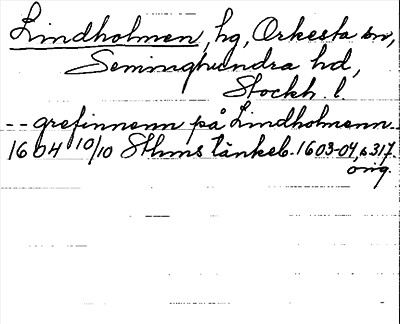 Lindholmen, hg, Orkesta sn,
Seminghundra hd,
Stockh. l.
-- grefinnenn på Lindholmenn --
1604 10/10 Sthms tänkeb. 1603-04, s 317.
orig.